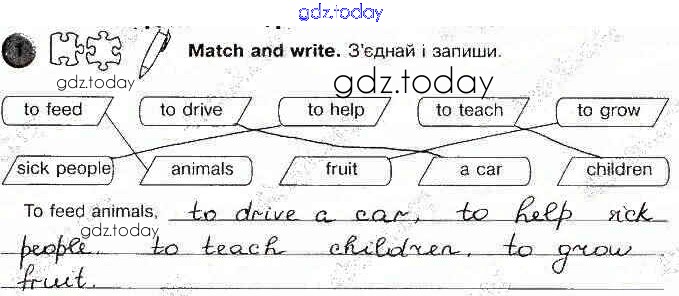 gdz.today
1 Match and write. З'єднай і запиши.
gdz.today gdz.today
to feed to drive to help to teach to grow
sick people animals fruit a car children
To feed animals, to drive a car, to help sick
gdz.today
people. to teach children, to grow
fruit.